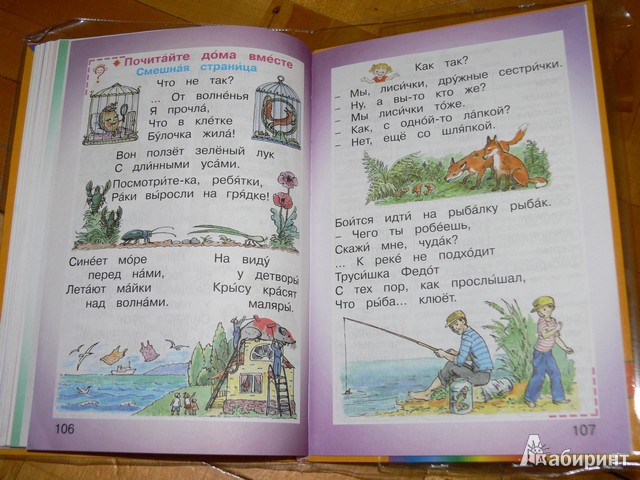 Почита́йте до́ма вме́сте
Смешна́я страни́ца
Что не так?
... От волне́нья
Я прочла́,
Что в кле́тке
Бу́лочка жила́!
Вон ползёт зелёный лук
С дли́нными уса́ми.
Посмотри́те-ка, ребя́тки,
Ра́ки вы́росли на гря́дке!
Сине́ет мо́ре
перед на́ми,
Лета́ют ма́йки
над волна́ми.
На виду́
у детворы́
Кры́су кра́сят
маляры́.
106
Как так?
– Мы, лиси́чки, дру́жные сестри́чки.
– Ну, а вы-то кто же?
– Мы лиси́чки то́же.
– Как, с одно́й-то ла́пкой?
– Нет, ещё со шля́пкой.
Бои́тся идти́ на рыба́лку рыба́к.
– Чего ты робе́ешь,
Скажи́ мне, чуда́к?
... К реке́ не подхо́дит
Труси́шка Федо́т
С тех пор, как прослы́шал,
Что ры́ба... клюёт.
107
Лабиринт